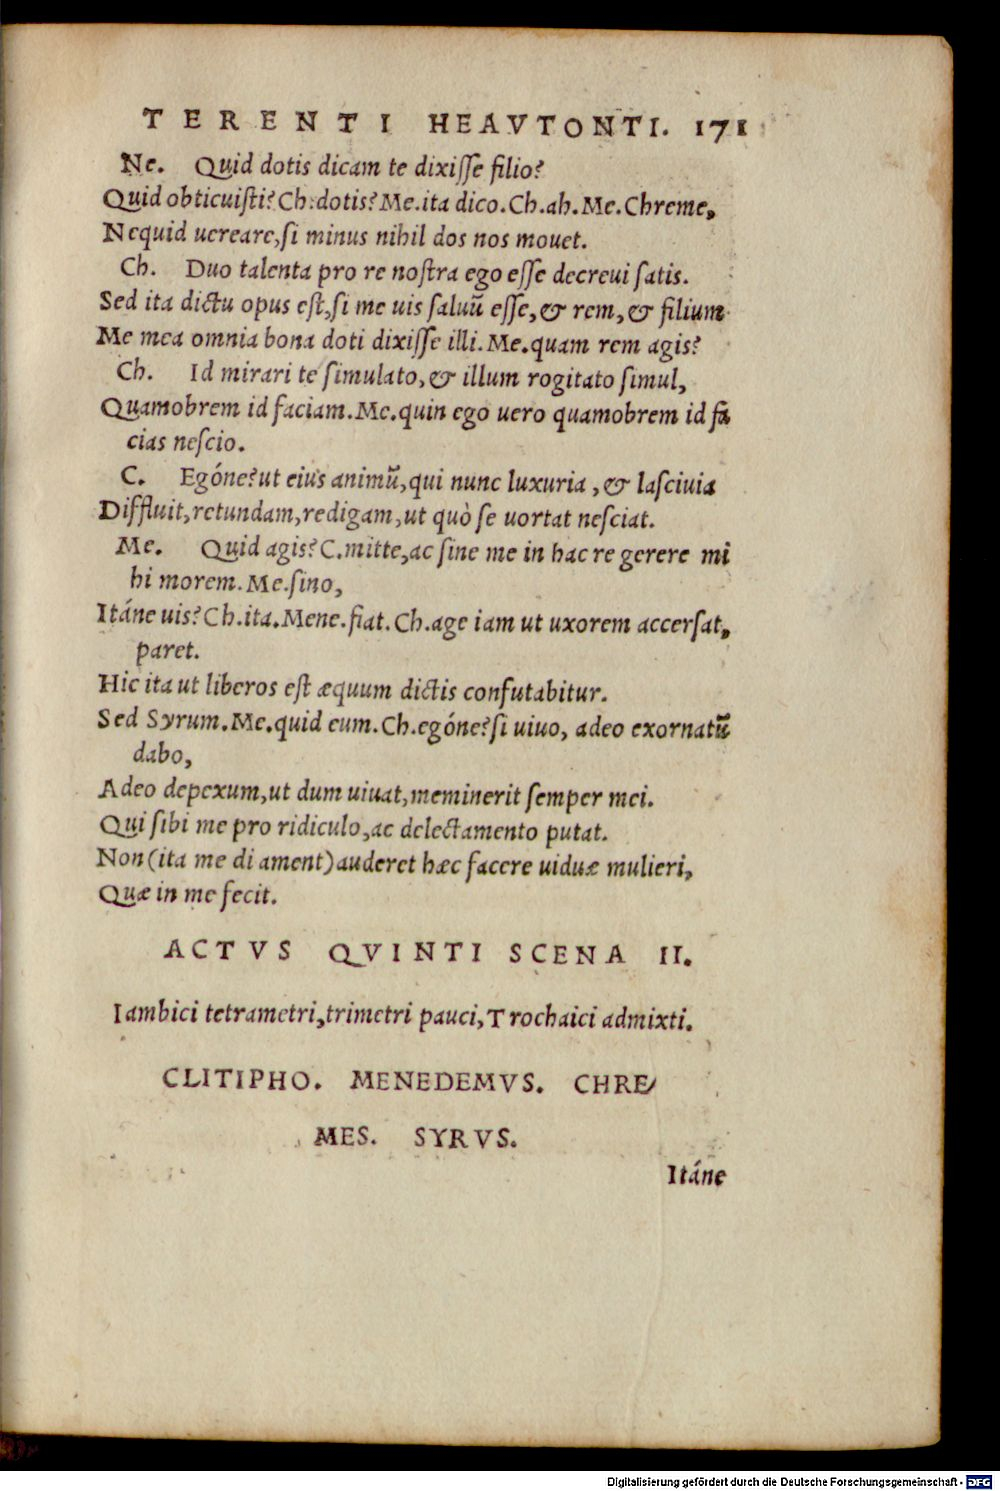 TERENTI HEAVTONTI. 171
Ne. Quid dotis dicam te dixiſſe filio?
Quid obticuiſti? Ch. dotis? Me. ita dico. Ch. ah. Me. Chreme,
Nequid uereare, ſi minus nihil dos nos mouet.
Ch. Duo talenta pro re noſtra ego eſſe decreui ſatis.
Sed ita dictu opus eſt, ſi me uis ſaluũ eſſe, & rem, & filium
Me mea omnia bona doti dixiſſe illi. Me. quam rem agis?
Ch. Id mirari te ſimulato, & illum rogitato ſimul,
Quamobrem id faciam. Me. quin ego uero quamobrem id fa
cias neſcio.
C. Egóne? ut eius animũ, qui nunc luxuria, & laſciuia
Diffluit, retundam, redigam, ut quò ſe uortat neſciat.
Me. Quid agis? C. mitte, ac ſine me in hac re gerere mi
hi morem. Me. ſino,
Itáne uis? Ch. ita. Mene. fiat. Ch. age iam ut uxorem accerſat,
paret.
Hic ita ut liberos eſt æquum dictis confutabitur.
Sed Syrum. Me. quid eum. Ch. egóne? ſi uiuo, adeo exornatũ
dabo,
Adeo depexum, ut dum uiuat, meminerit ſemper mei.
Qui ſibi me pro ridiculo, ac delectamento putat.
Non (ita me di ament) auderet hæc facere uiduæ mulieri,
Quæ in me fecit.
ACTVS QVINTI SCENA II.
Iambici tetrametri, trimetri pauci, Trochaici admixti.
CLITIPHO. MENEDEMVS. CHRE/
MES. SYRVS.
Itáne
Digitalisierung gefördert durch die Deutsche Forschungsgemeinschaft - DFG